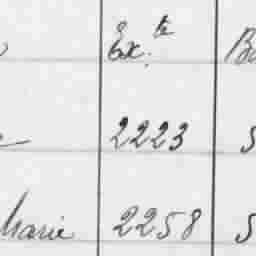 Ex. te
2223 5
Marie 2258 5